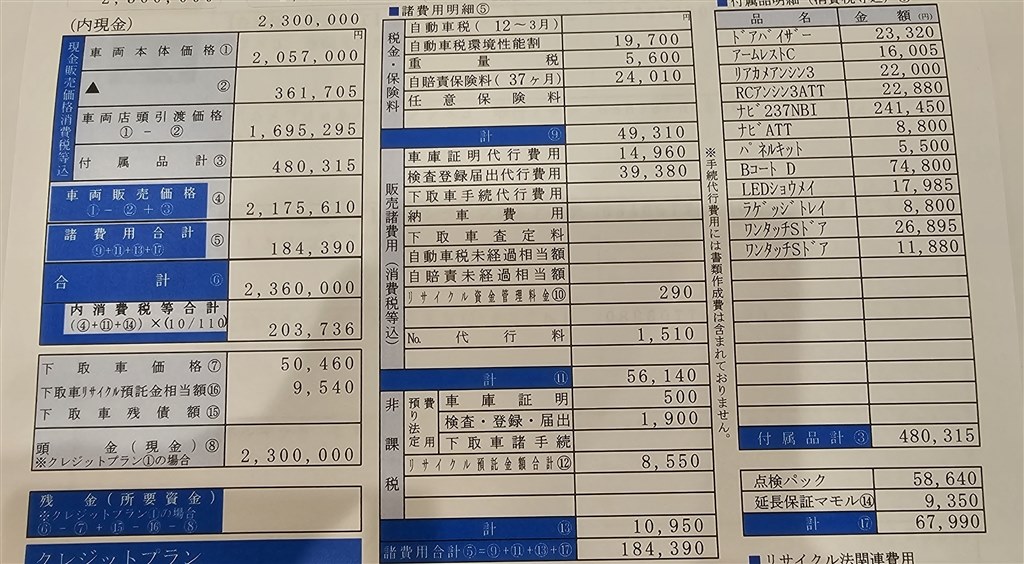 (内現金) 2,300,000
現金販売価格消費税等込
円
車両本体価格① 2,057,000
▲ ② 361,705
車両店頭引渡価格
①－② 1,695,295
付属品計③ 480,315
車両販売価格
①－②＋③ ④ 2,175,610
諸費用合計
⑨＋⑪＋⑬＋⑰ ⑤ 184,390
合計⑥ 2,360,000
内消費税等合計
(④＋⑪＋⑭)×(10/110) 203,736
下取車価格⑦ 50,460
下取車リサイクル預託金相当額⑯ 9,540
下取車残債額⑮
頭金(現金)⑧
※クレジットプラン①の場合 2,300,000
残金(所要資金)
※クレジットプラン①の場合
⑥－⑦＋⑮－⑯－⑧
クレジットプラン
■諸費用明細⑤
税金・保険料
自動車税(12～3月) 円
自動車税環境性能割 19,700
重量税 5,600
自賠責保険料(37ヶ月) 24,010
任意保険料
計⑨ 49,310
販売諸費用(消費税等込)
車庫証明代行費用 14,960
検査登録届出代行費用 39,380
下取車手続代行費用
納車費用
下取車査定料
自動車税未経過相当額
自賠責未経過相当額
リサイクル資金管理料金⑩ 290
No.代行料 1,510
計⑪ 56,140
非課税
預り法定費用
車庫証明 500
検査・登録・届出 1,900
下取車諸手続
リサイクル預託金額合計⑫ 8,550
計⑬ 10,950
諸費用合計⑤＝⑨＋⑪＋⑬＋⑰ 184,390
※手続代行費用には書類作成費は含まれておりません。
品名 金額(円)
ドアバイザー 23,320
アームレストC 16,005
リアカメアンシン3 22,000
RCアンシン3ATT 22,880
ナビ237NBI 241,450
ナビATT 8,800
パネルキット 5,500
Bコート D 74,800
LEDショウメイ 17,985
ラゲッジトレイ 8,800
ワンタッチSドア 26,895
ワンタッチSドア 11,880
付属品計③ 480,315
点検パック 58,640
延長保証マモル⑭ 9,350
計⑰ 67,990
■リサイクル法関連費用